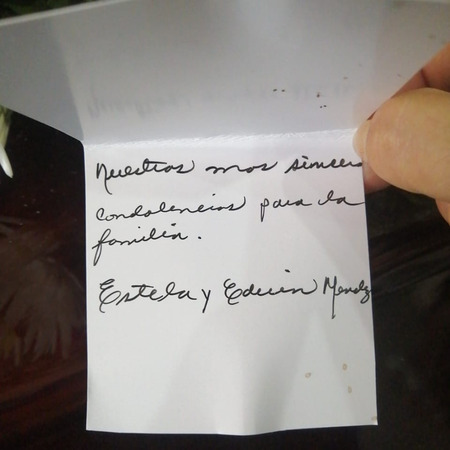 Nuestras mas sinceras
condolencias para la
familia.
Estela y Edwin Mendz